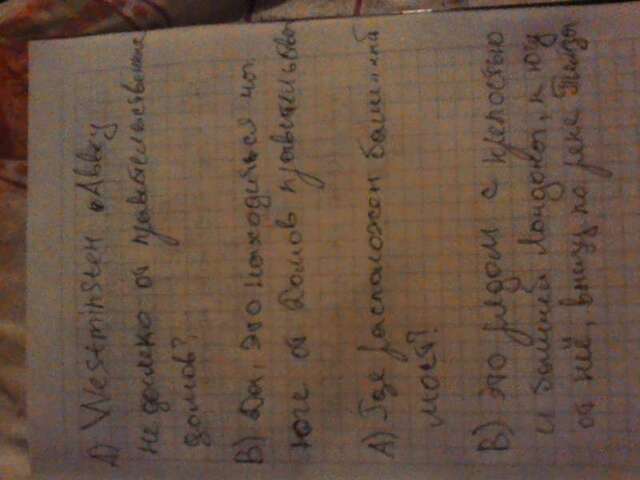 A) Westminsteн Abbey
не далеко от правительственных
домов?
B) Да, это находиться на
юге от Домов правительства
A) Где расположен башенный
мост?
B) Это рядом с крепостью
и башней Лондона, к югу
от неё, внизу по реке Темзы